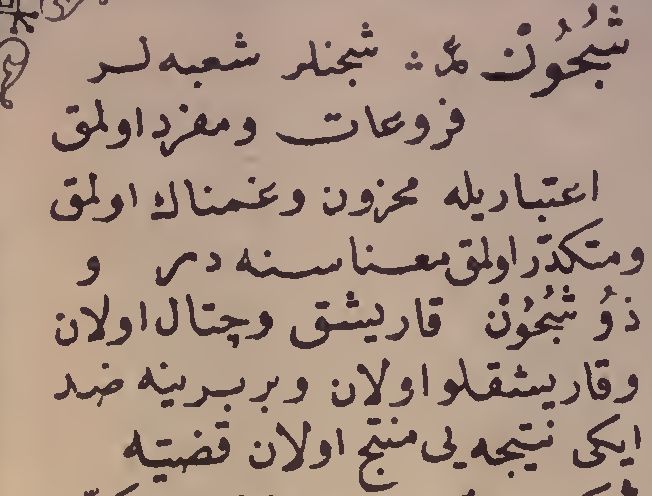 شُجُونْ شجنلر شعبه لر
فروعات ومفرد اولمق
اعتباريله محزون وغمناك اولمق
ومتكدّر اولمق معناسنه در و
ذُو شُجُونْ قاريشق وچتال اولان
وقاريشقلو اولان وبربرينه ضد
ايكى نتيجه يى منتج اولان قضيّه